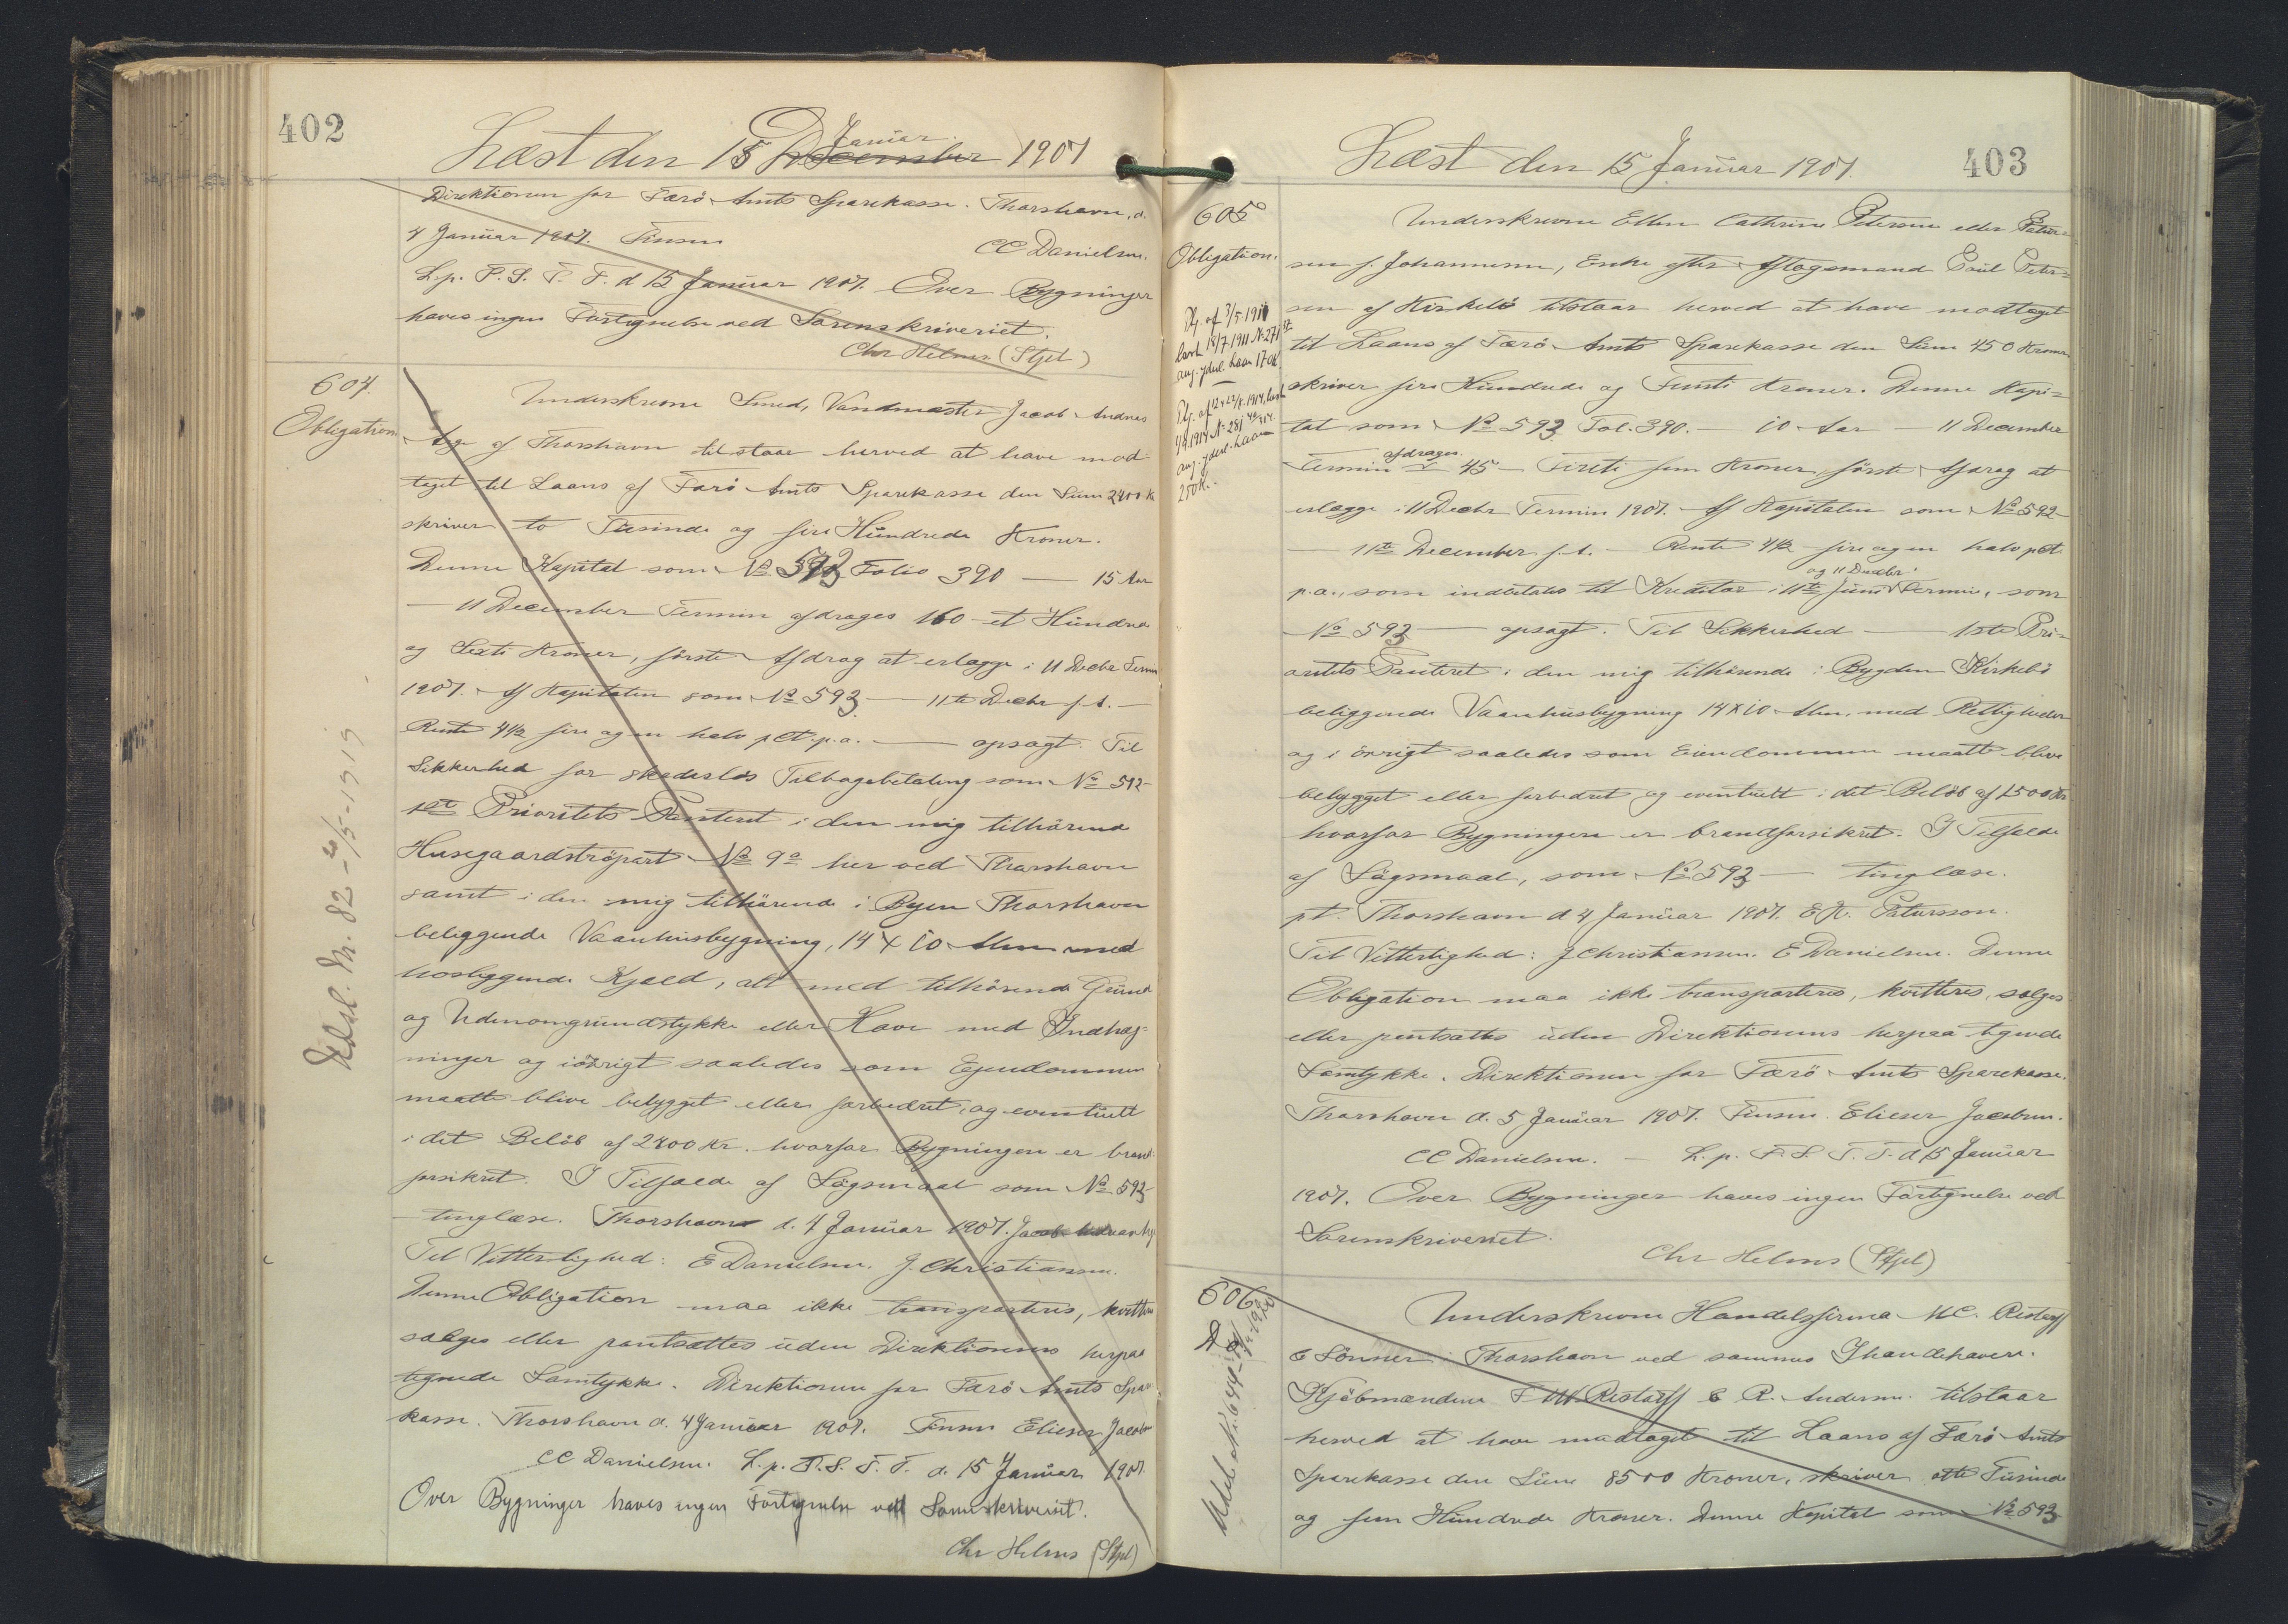 402
Læst den 15 Januar 1907
Direktionen for Færö Amts Sparekasse. Thorshavn, d.
4 Januar 1907. Finsen CC Danielsen.
L.p. F. S. T. F. d 15 Januar 1907. Over Bygninger
haves ingen Fortegnelse ved Sorenskriveriet.
Chr Helms (Stpl)
604.
Obligation
Underskrevne Smed, Vandmester Jacob Andreas
af Thorshavn tilstaar herved at have mod-
taget til Laans af Færö Amts Sparekasse den Sum 2400 K
skriver to Tusinde og fire Hundrede Kroner.
Denne Kapital som No 593 Folio 390 — 15 Aar
— 11 December Termin afdrages 160 - et Hundrede
og Sexti Kroner, förste Afdrag at erlægge i 11 Decbr Termin
1907. Af Kapitalen som No 593 — 11te Decbr f. A. —
Rente 4½ fire og en halv pCt. p.a. — opsagt. Til
Sikkerhed for skadeslös Tilbagebetaling som No 592
1ste Prioritets Panteret i den mig tilhörende
Husegaardströpart No 9a her ved Thorshavn
samt i den mig tilhörende i Byen Thorshavn
beliggende Vaanhusbygning, 14 x 10 Alen med
hosliggende Kjæld, alt med tilhörende Grund
og Udenomgrundstykke eller Have med Indheg-
ninger og iövrigt saaledes som Ejendommen
maatte blive bebygget eller forbedret, og eventuelt
i det Belöb af 2400 Kr. hvorfor Bygningen er brand-
forsikret. I Tilfælde af Sögsmaal som No 593
— tinglæse. Thorshavn d. 4 Januar 1907. Jacob
Til Vitterlighed: E Danielsen. J. Christiansen.
Denne Obligation maa ikke transporteres, kvitteres
sælges eller pantsættes uden Direktionens herpaa
tegnede Samtykke. Direktionen for Færö Amts Spare-
kasse. Thorshavn d. 4 Januar 1907. Finsen Elieser Jacobsen
CC Danielsen. L. p. F. S. T. F. d. 15 Januar 1907
Over Bygninger haves ingen Fortegnelse ved Sorenskriveriet.
Chr Helms (Stpl)
Udsl. Nr. 82 -
403
Læst den 15 Januar 1907.
605
Obligation.
ang. yderl. Laan
ang. yderl. Laan
250 K.
Underskrevne Ellen Cathrine Petersen eller Paturs-
son f. Johannesen, Enke efter Aftægsmand Poul Peter-
sen af Kirkebö tilstaar herved at have modtaget
til Laans af Færö Amts Sparekasse den Sum 450 Kroner
skriver fire Hundrede og Femti Kroner. Denne Kapi-
tal som No 593 Fol. 390. — 10 Aar — 11 December
Termin afdrages 45 — Firti fem Kroner, förste Afdrag at
erlægge i 11 Decbr Termin 1907. Af Kapitalen som No 592
— 11te December f. A. — Rente 4½ fire og en halv pCt
p.a., som indbetales til Kreditor i 11te Juni og 11 Decbr Termin, som
No 593 — opsagt. Til Sikkerhed — 1ste Pri-
oritets Panteret i den mig tilhörende i Bygden Kirkebö
beliggende Vaanhusbygning 14 x 10 Alen, med Rettigheder
og i övrigt saaledes som Eiendommen maatte blive
bebygget eller forbedret og eventuelt i det Belöb af 1500 Kr
hvorfor Bygningen er brandforsikret. I Tilfælde
af Sögsmaal, som No 593 — tinglæse.
pt. Thorshavn d 4 Januar 1907. E K. Patursson.
Til Vitterlighed: J Christiansen. E Danielsen. Denne
Obligation maa ikke transporteres, kvitteres, sælges
eller pantsættes uden Direktionens herpaa tegnede
Samtykke. Direktionen for Færö Amts Sparekasse.
Thorshavn d. 5 Januar 1907. Finsen. Elieser Jacobsen.
CC Danielsen. — L. p. F. S. T. F. d 15 Januar
1907. Over Bygninger haves ingen Fortegnelse ved
Sorenskriveriet.
Chr Helms (Stpl)
606
Underskrevne Handelsfirma M C. Restorff
& Sönner i Thorshavn ved sammes Ihændehavere.
Kjöbmændene F M Restorff & R. Andersen tilstaar
herved at have modtaget til Laans af Færö Amts
Sparekasse den Sum 8500 Kroner, skriver otte Tusinde
og fem Hundrede Kroner. Denne Kapital som No 593